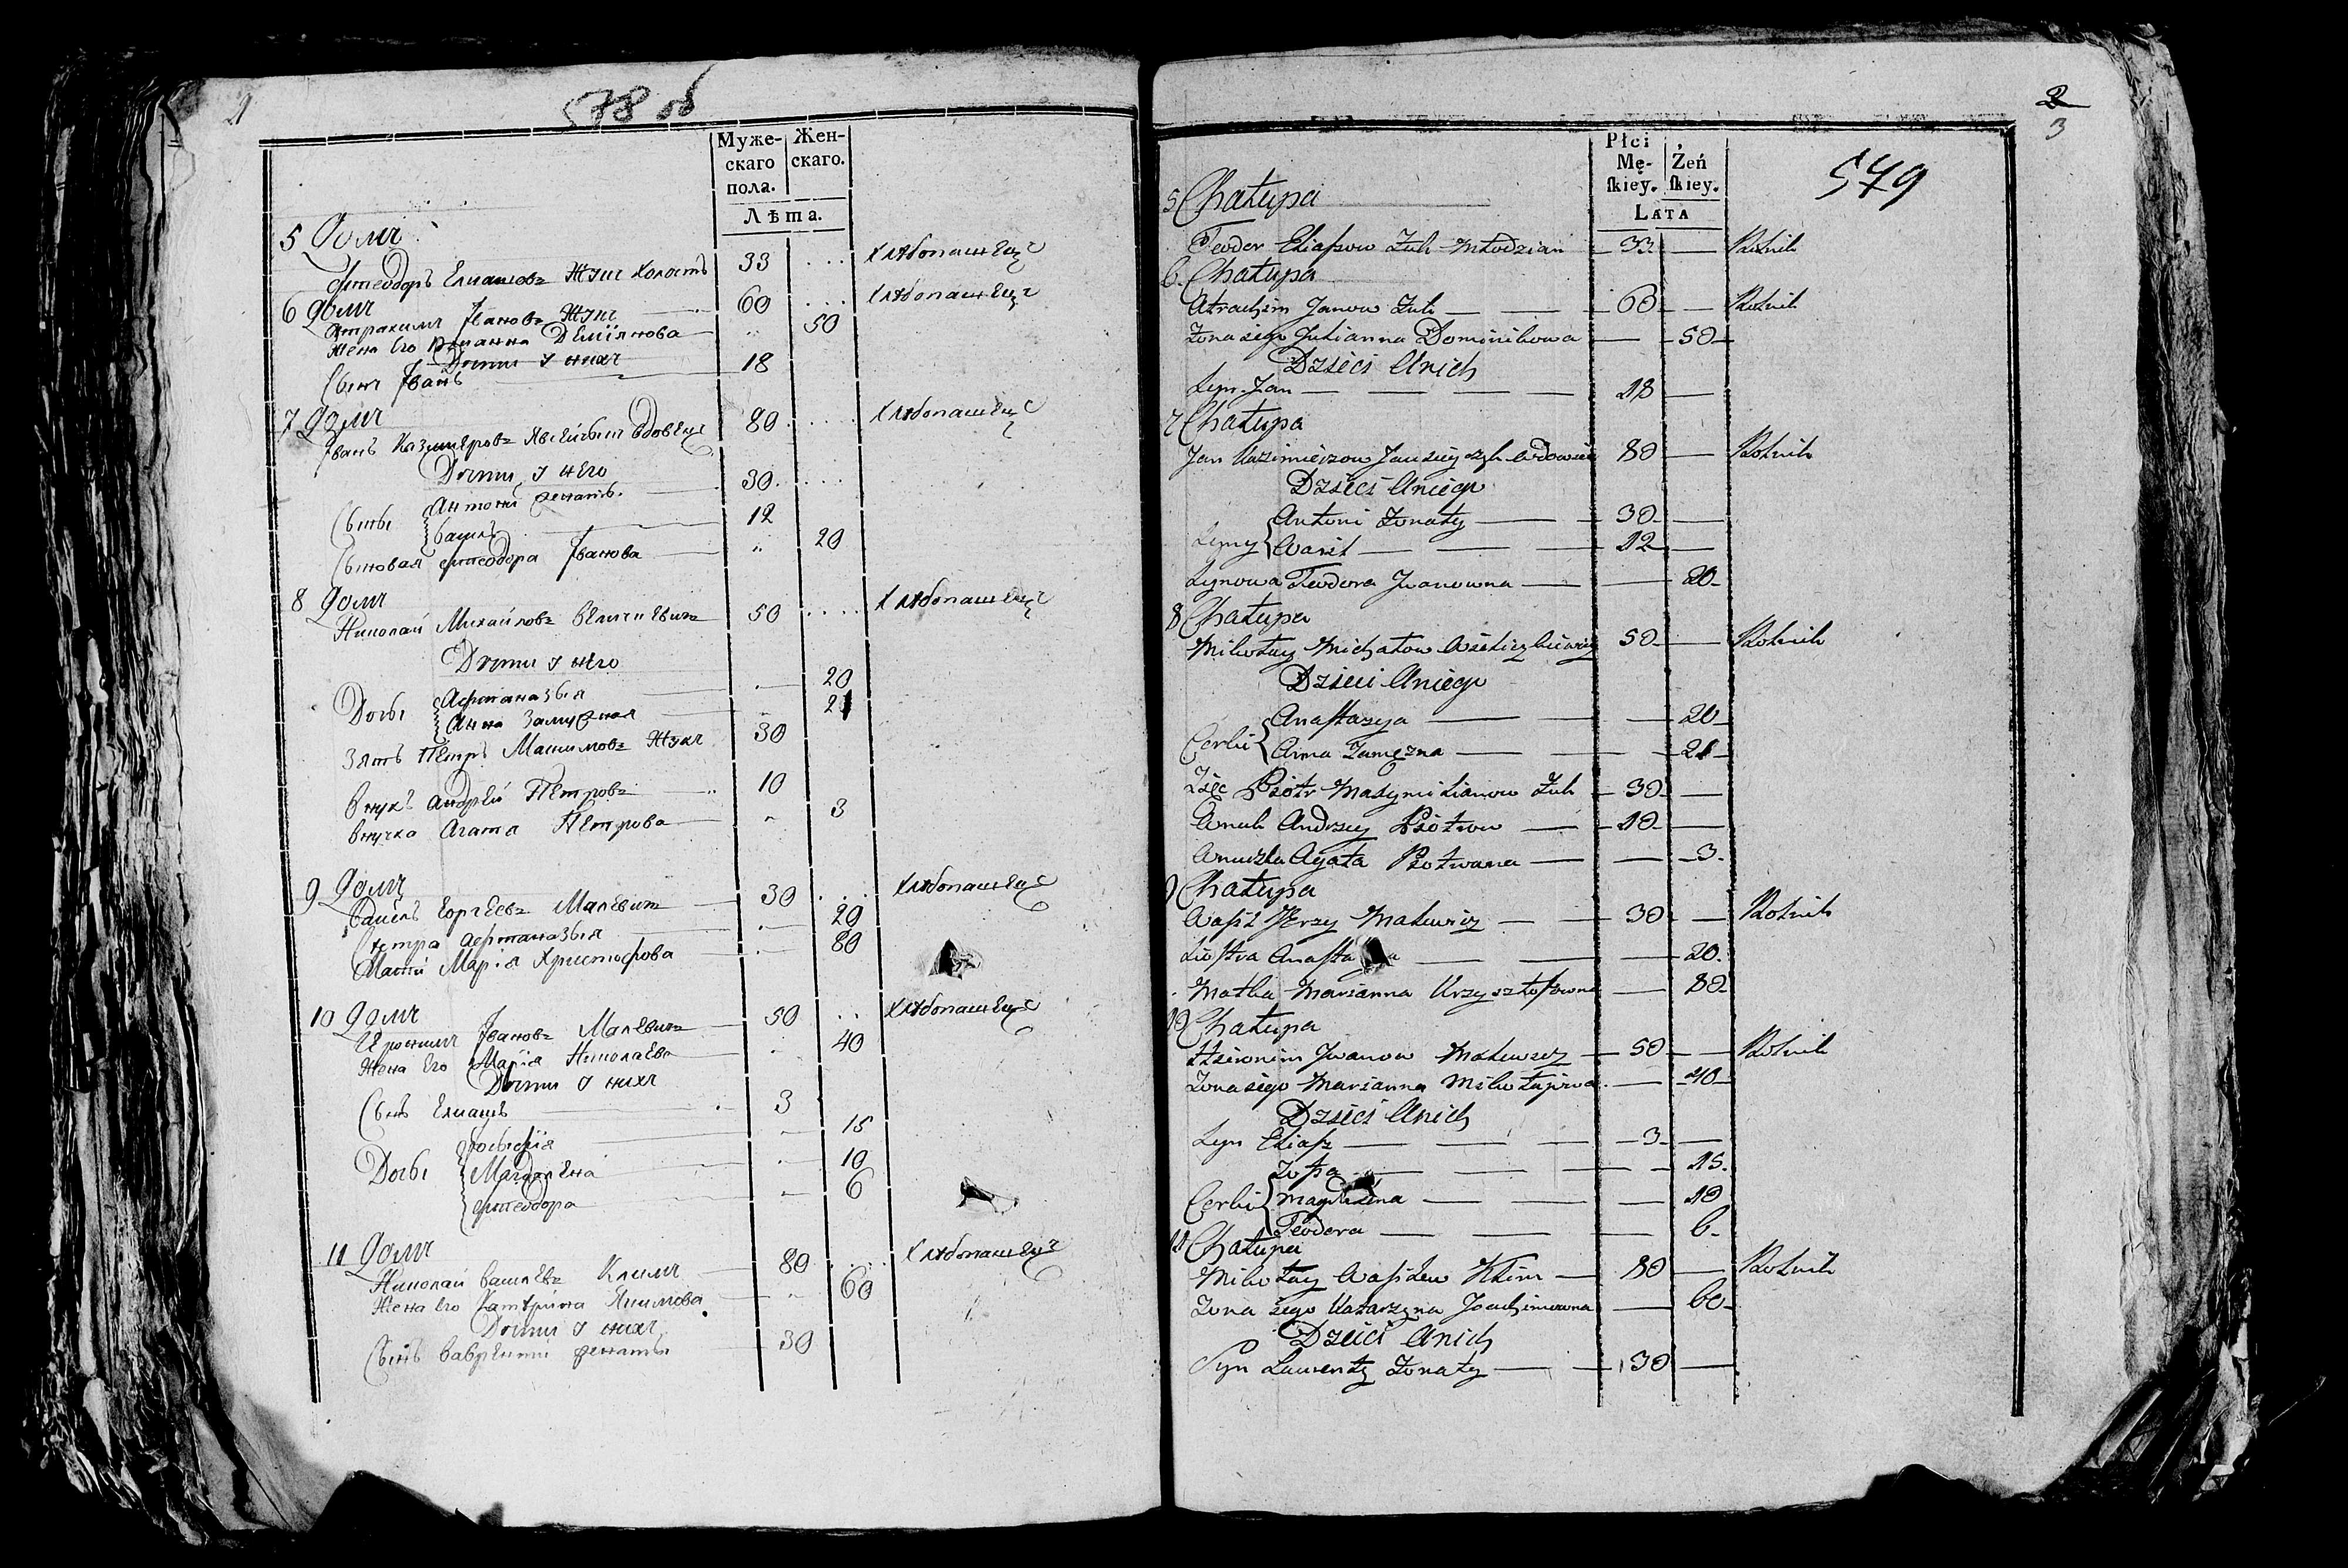 2
578 об
Муже-
скаго
пола.
Жен-
скаго.
Лѣта.
5 Домъ
Фтеодоръ Елиашовъ Жукъ холостъ 33 .... Хлѣбопашецъ
6 Домъ
Атрахимъ Івановъ Жукъ 60 ... Хлѣбопашецъ
Жена Его Демїянова 50
Дѣти у нихъ
Сынъ Іванъ 18
7 Домъ
Іванъ Казимеровъ вдовецъ 80 .... Хлѣбопашецъ
Дѣти у него
Сыны Антони женатъ. 30 ....
Василъ 12
Сыновая Фтеодора Іванова 20
8 Домъ
Николай Михайловъ Величкевичъ 50 .... Хлѣбопашецъ
Дѣти у него
Дочы Афтаназыя 20
Анна Замужная 21
Зять Петръ Машимовъ Жукъ 30
Внукъ Андрей Петровъ 10
Внучка Агата Петрова 3
9 Домъ
Василъ Ѣоргеевъ Малевичъ 30 ... Хлѣбопашецъ
Сестра Афтаназыя 20
Мати Марія Христофова 80
10 Домъ
Иронимъ Івановъ Малевичъ 50 .. Хлѣбопашецъ
Жена Его Марїя Николаева 40
Дѣти у нихъ
Сынъ Елиашъ 3
Дочы Зофїя 15
Магдалена 10
Фтеодора 6
11 Домъ
Николай Василевъ Климъ 80 .... Хлѣбопашецъ
Жена Его Катерина Якимова 60
Дѣти у нихъ
Сынъ Вавренти женаты 30
2
3
579
Płci
Mę-
ſkiey.
Żeń
ſkiey.
LATA
5 Chałupa
Teodor Eliaszow Żuk Młodzian 33 Rolnik
6. Chałupa
Atrachim Janow Żuk 60 Rolnik
Żona iego Julianna Dominikowa 50
Dzieci Unich
Syn Jan 18
7 Chałupa
Jan Kazimierzow Jausieyczyk wdowiec 80 Rolnik
Dzieci Uniego
Synowie Antoni Żonaty 30
Wasil 12
Synowa Teodora Iwanowna 20
8 Chałupa
Mikołay Michałow Wieliczkiewicz 50 Rolnik
Dzieci Uniego
Corki Anastazya 20
Anna Zamężna 21
Zięć Piotr Maxymilianow Żuk 30
Wnuk Andrzey Piotrow 10
Wnuczka Agata Piotrowna 3
9 Chałupa
Wasil Jerzy Malewicz 30 Rolnik
Siostra Anasta a 20
Matka Marianna Krzysztofowna 80
10 Chałupa
Hieronim Iwanow Malewicz 50 Rolnik
Żona iego Marianna Mikołajowa 40
Dzieci Unich
Syn Eliasz 3
Corki Zofia 15
Magdalena 10
Teodora 6
11 Chałupa
Mikołay Wasilew Klim 80 Rolnik
Żona iego Katarzyna Joachimowna 60
Dzieci Unich
Syn Laurenty Żonaty 30